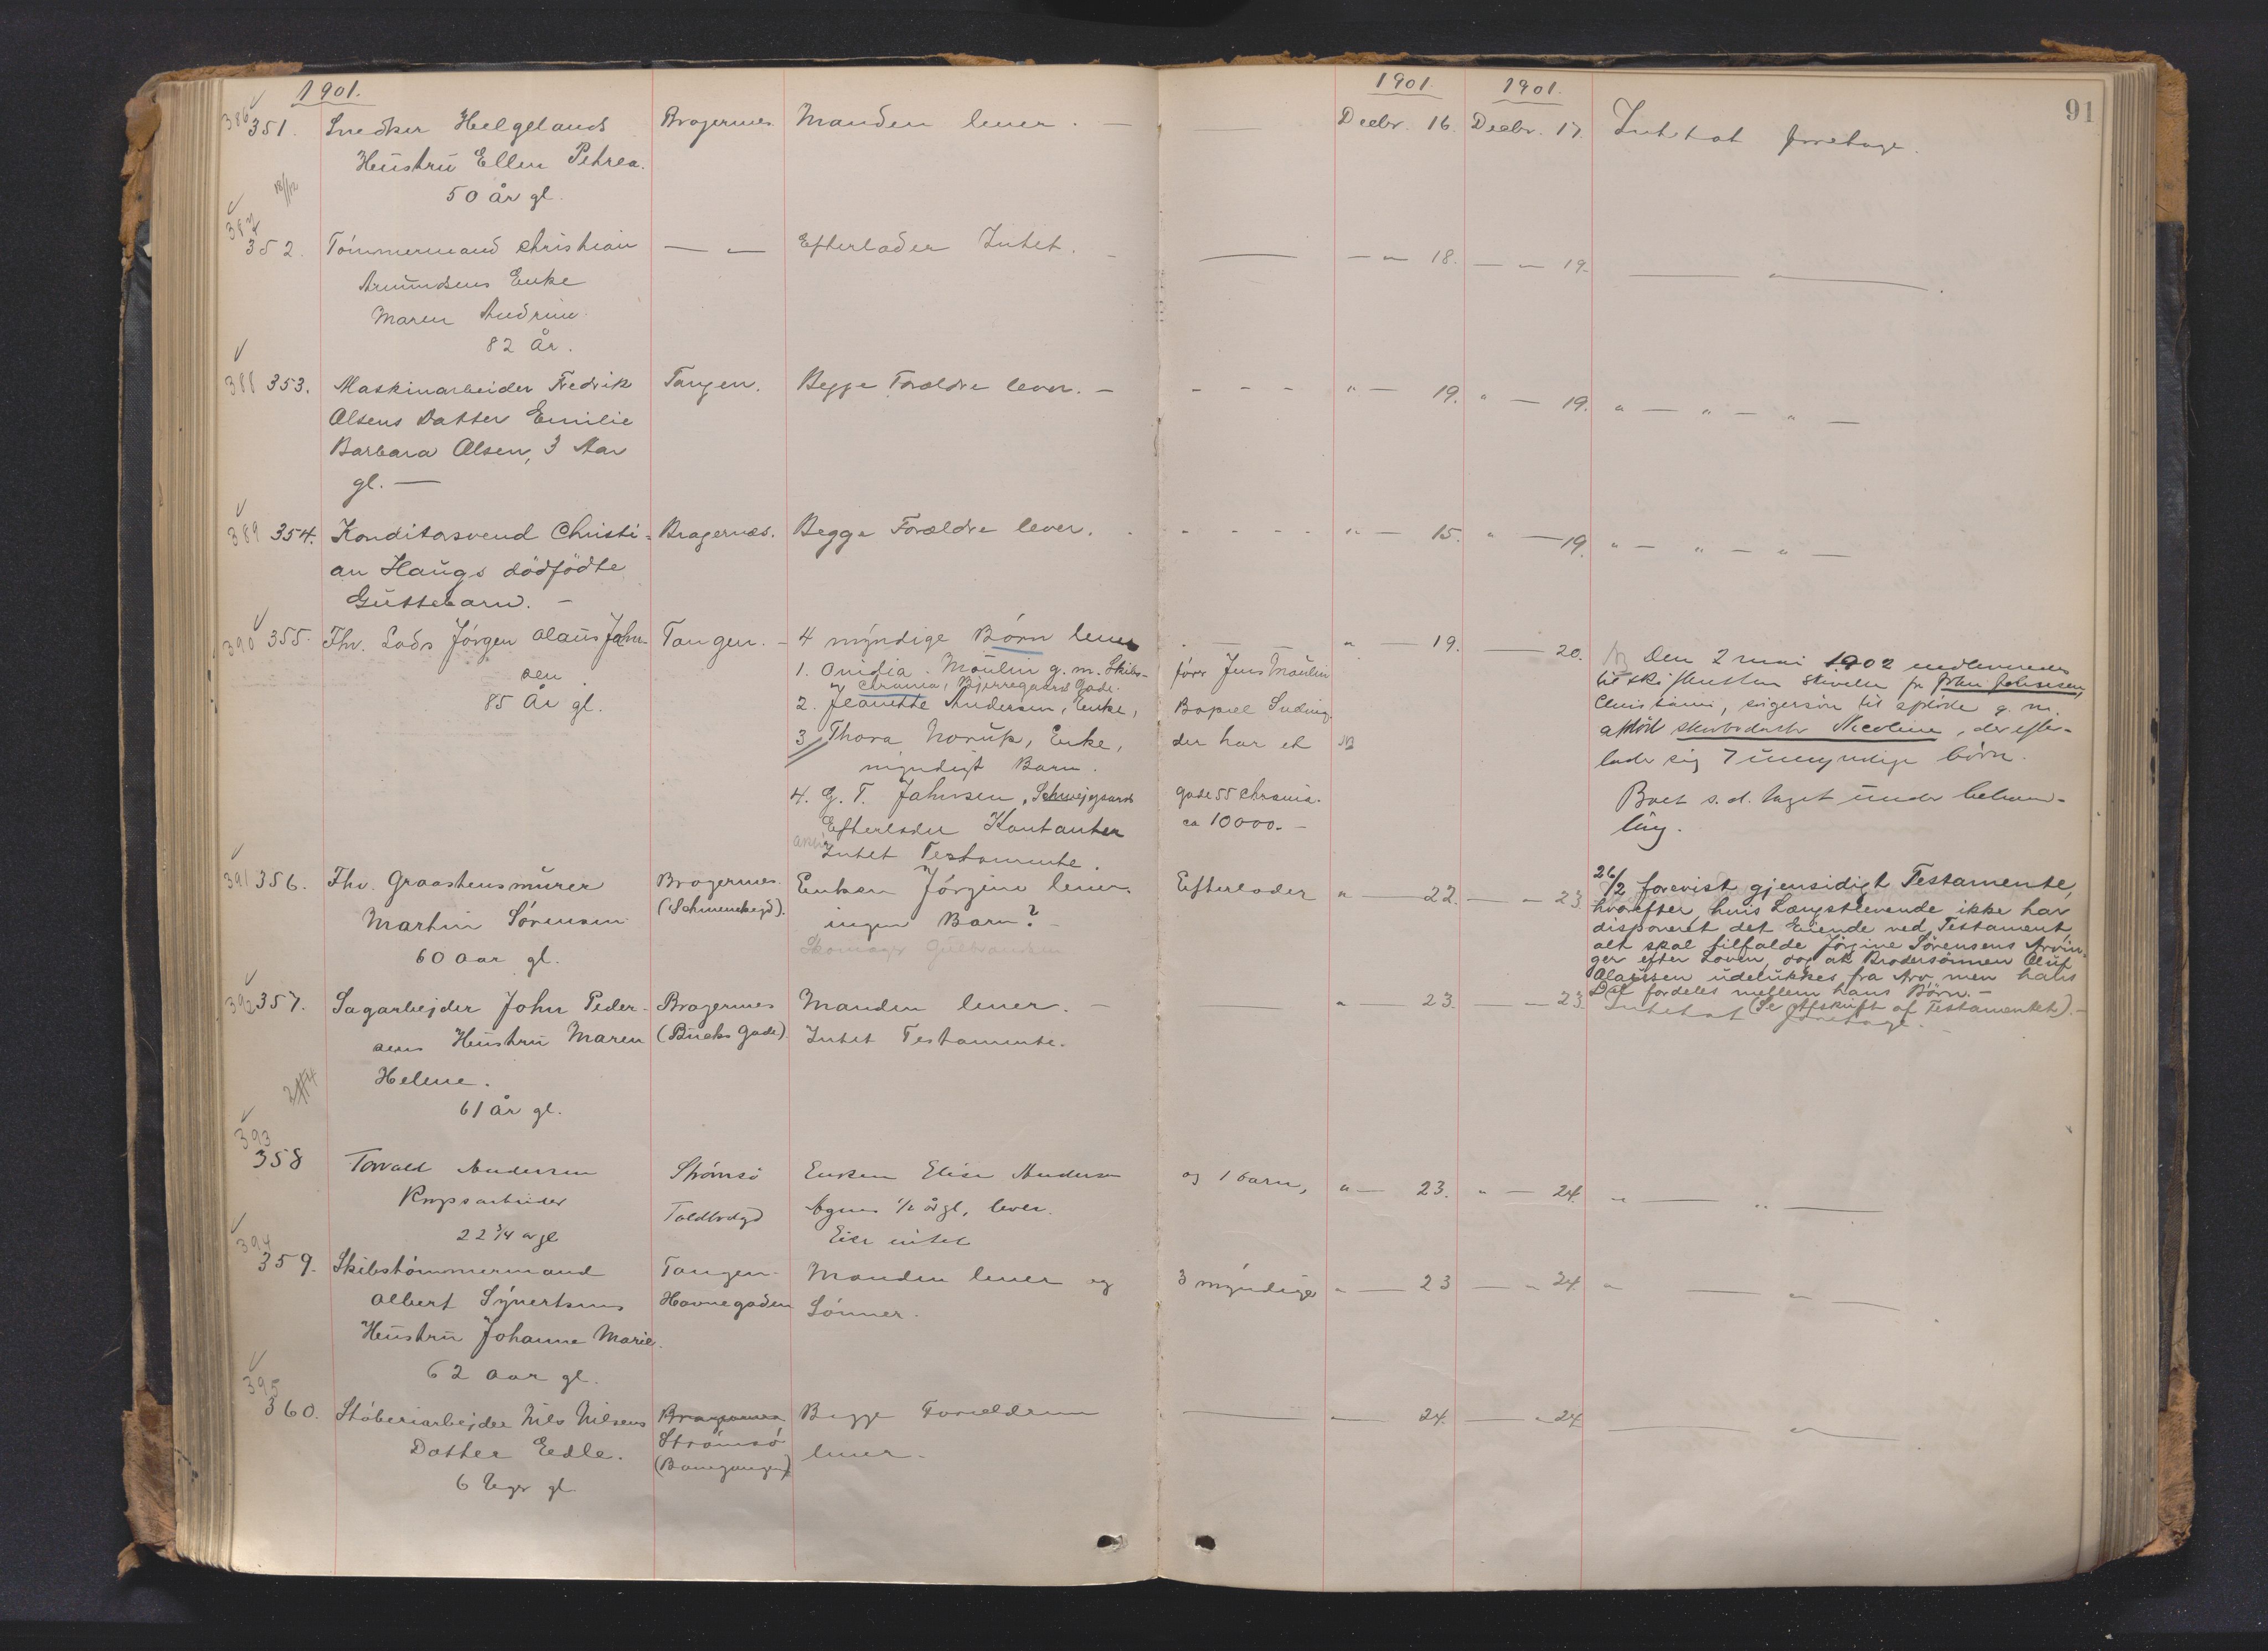 1901.
1901.
1901.
91
386
351.
Snedker Helgelands
Bragernes
Manden lever. —
Decbr. 16.
Decbr. 17.
Intet at foretage.
Hustru Ellen Petrea.
50 år gl.
18/12
387
352.
Tømmermand Christian
— " —
Efterlader Intet. —
— " — 18.
— " — 19.
— " —
Amundsens Enke
Maren Andrine
82 År.
388
353.
Maskinarbeider Fredrik
Tangen.
Begge Forældre lever. —
- - -
" — 19.
" — 19.
" — " — " —
Olsens Datter Emilie
Barbara Olsen, 3 Aar
gl. —
389
354.
Konditorsvend Christi-
Bragernæs.
Begge Forældre lever.
- - - -
" — 15.
" — 19.
" — " — " —
an Haugs dödfödte
Guttebarn. —
390
355.
Fhv. Lods Jørgen Olaus Jahn-
Tangen. —
4 myndige Børn lever
" — 19.
— 20.
sen
85 År gl.
1. Ovidia Moulin g. m. Skibs-
fører Jens Moulin
Chrania, Bjerregaards Gade.
2. Jeanette Andersen, Enke,
Bopæl
3 Thora Norup, Enke,
der har et
myndigt Barn.
4. G. T. Jahnsen, Schweigaards
gade 55 Chrania.
Efterlader Kontanter
ca 10000. —
Intet Testamente.
Den 2 mai 1902 indleveredes
til skifteretten skrivelse fra John Johnsen,
Christiania, til g. m.
afdöd Nicoline, der efter-
lader sig 7 umyndige børn.
Boet s. d. taget under behand-
ling.
391
356.
Fhv. Graastensmurer
Bragernes
Enken Jörgine lever.
Efterlader
" — 22.
— " — 23.
Martin Sørensen
(Schwenckegd).
ingen Barn? —
60 Aar gl.
Skomager Gulbrandsen
26/2 forevist gjensidigt Testamente,
hvorefter, hvis Længstlevende ikke har
disponeret det Eiende ved Testament,
alt skal tilfalde Jörgine Sörensens Arvin-
ger efter Loven, og at Brodersönnen Oluf
Olaussen udelukkes fra Arv men hans
Del fordeles mellem hans Börn. —
(Se Afskrift af Testamentet). —
392
357.
Sagarbejder John Peder-
Bragernes
Manden lever. —
" — 23.
— " — 23.
Intet at foretage. —
sens Hustru Maren
(Bucks Gade).
Intet Testamente.
Helene.
61 år gl.
393
358
Torvald Andersen
Strømsö
Enken Elise Andersen
og 1 barn,
" — 23.
" — 24.
" — " —
Toldbodgd
Agnes 1/2 år gl, lever.
22 3/4 år gl
Eier intet
394
359.
Skibstømmermand
Tangen
Manden lever og
3 myndige
" — 23
— " 24.
" — " —
Albert Syvertsens
Havnegaden
Sønner.
Hustru Johanne Marie.
62 Aar gl.
395
360.
Støberiarbejder Nils Nilsens
Bragernes
Begge Forældrene
— 24.
— " 24.
— " —
Datter Eedle.
Strømsö
lever —
(Banegangen)
6 Uger gl